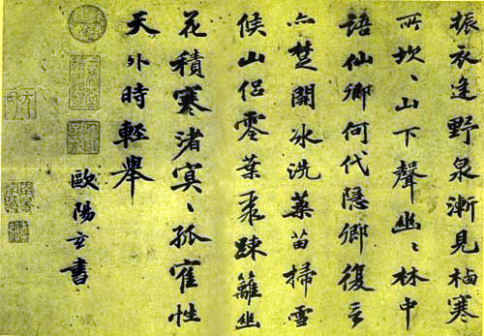 振衣逢野泉漸見栖寒
所坎〻山下聲幽〻林中
語仙鄉何代隱鄉復言
亦楚開冰洗藥苗掃雪
候山侶零葉聚踈籬幽
花積寒渚冥〻孤隺性
天外時輕舉
歐陽玄書